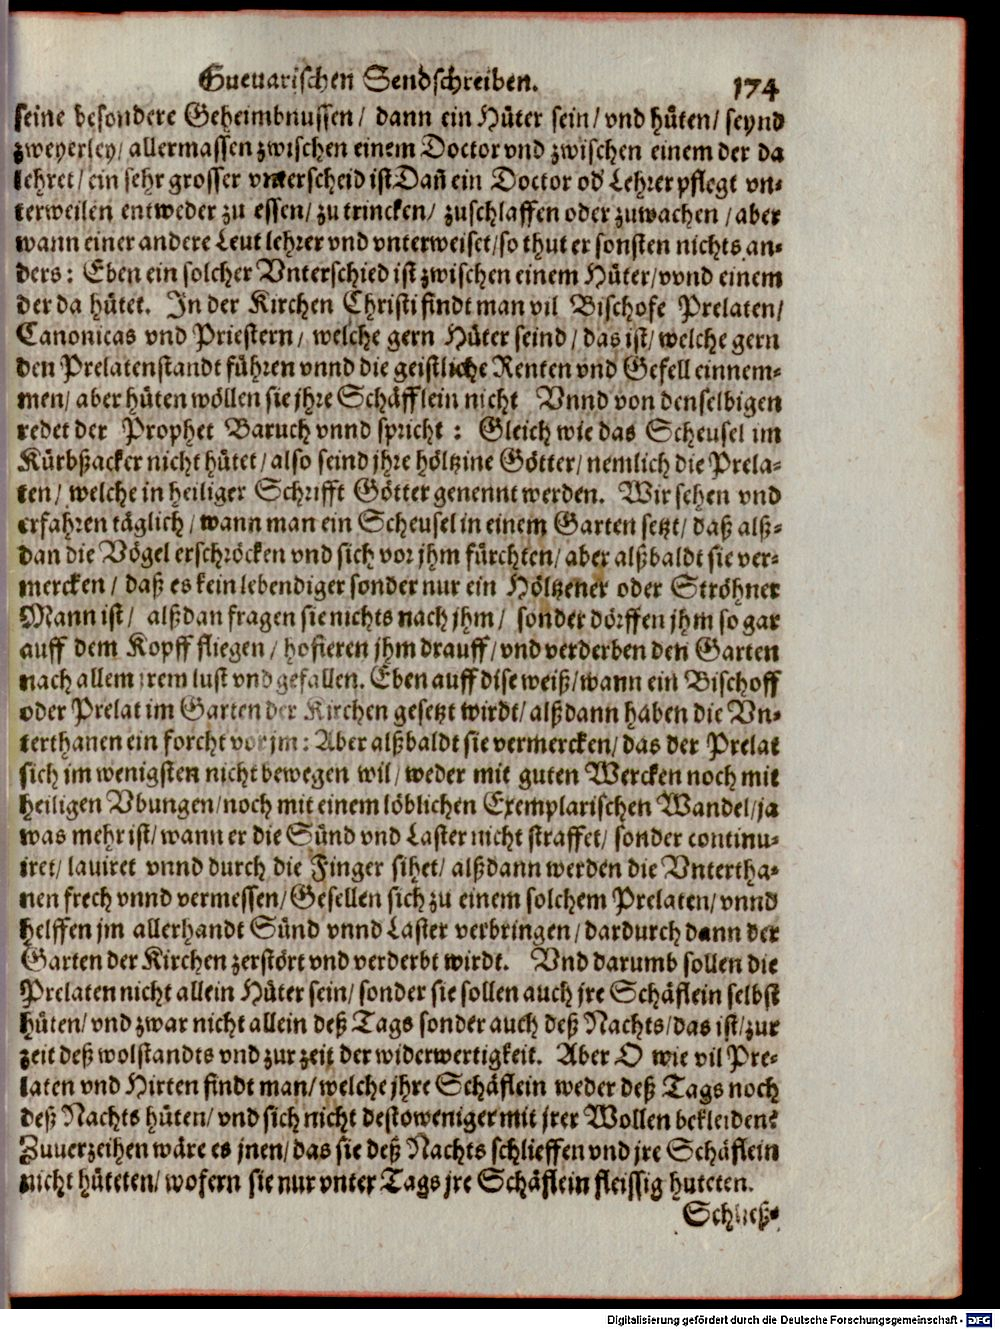 Guevarischen Sendschreiben. 174
seine besondere Geheimbnussen/ dann ein Hüter sein/ vnd hüten/ seynd
zweyerley/ allermassen zwischen einem Doctor vnd zwischen einem der da
lehret/ ein sehr grosser vnterscheid ist Dañ ein Doctor od' Lehrer pflegt vn-
terweilen entweder zu essen/ zu trincken/ zuschlaffen oder zuwachen / aber
wann einer andere Leut lehrer vnd vnterweiset/ so thut er sonsten nichts an-
ders: Eben ein solcher Vnterschied ist zwischen einem Hüter/ vvnd einem
der da hütet. In der Kirchen Christi findt man vil Bischofe Prelaten/
Canonicas vnd Priestern/ welche gern Hüter seind / das ist/ welche gern
den Prelatenstandt führen vnnd die geistliche Renten vnd Gefell einnem-
men/ aber hüten wöllen sie jhre Schäfflein nicht Vnnd von denselbigen
redet der Prophet Baruch vnnd spricht: Gleich wie das Scheusel im
Kürbßacker nicht hütet/ also seind jhre höltzine Götter/ nemlich die Prela-
ten/ welche in heiliger Schrifft Götter genennt werden. Wir sehen vnd
erfahren täglich/ wann man ein Scheusel in einem Garten setzt/ daß alß-
dan die Vögel erschröcken vnd sich vor jhm fürchten/ aber alßbaldt sie ver-
mercken/ daß es kein lebendiger sonder nur ein Höltzener oder Ströhner
Mann ist/ alßdan fragen sie nichts nach jhm/ sonder dörffen jhm so gar
auff dem Kopff fliegen/ hofieren jhm drauff/ vnd verderben den Garten
nach allem jrem lust vnd gefallen. Eben auff dise weiß/ wann ein Bischoff
oder Prelat im Garten der Kirchen gesetzt wirdt/ alßdann haben die Vn-
terthanen ein forcht vor jm: Aber alßbaldt sie vermercken/ das der Prelat
sich im wenigsten nicht bewegen wil/ weder mit guten Wercken noch mit
heiligen Vbungen/ noch mit einem löblichen Exemplarischen Wandel/ ja
was mehr ist/ wann er die Sünd vnd Laster nicht straffet/ sonder continu-
iret/ laviret vnnd durch die Finger sihet/ alßdann werden die Vntertha-
nen frech vnnd vermessen/ Gesellen sich zu einem solchem Prelaten/ vnnd
helffen jm allerhandt Sünd vnnd Laster verbringen/ dardurch dann der
Garten der Kirchen zerstört vnd verderbt wirdt. Vnd darumb sollen die
Prelaten nicht allein Hüter sein/ sonder sie sollen auch jre Schäflein selbst
hüten/ vnd zwar nicht allein deß Tags sonder auch deß Nachts/ das ist/ zur
zeit deß wolstandts vnd zur zeit der widerwertigkeit. Aber O wie vil Pre-
laten vnd Hirten findt man/ welche jhre Schäflein weder deß Tags noch
deß Nachts hüten/ vnd sich nicht destoweniger mit jrer Wollen bekleiden?
Zuverzeihen wäre es jnen/ das sie deß Nachts schlieffen vnd jre Schäflein
nicht hüteten/ wofern sie nur vnter Tags jre Schäflein fleissig huteten.
Schließ-
Digitalisierung gefördert durch die Deutsche Forschungsgemeinschaft - DFG